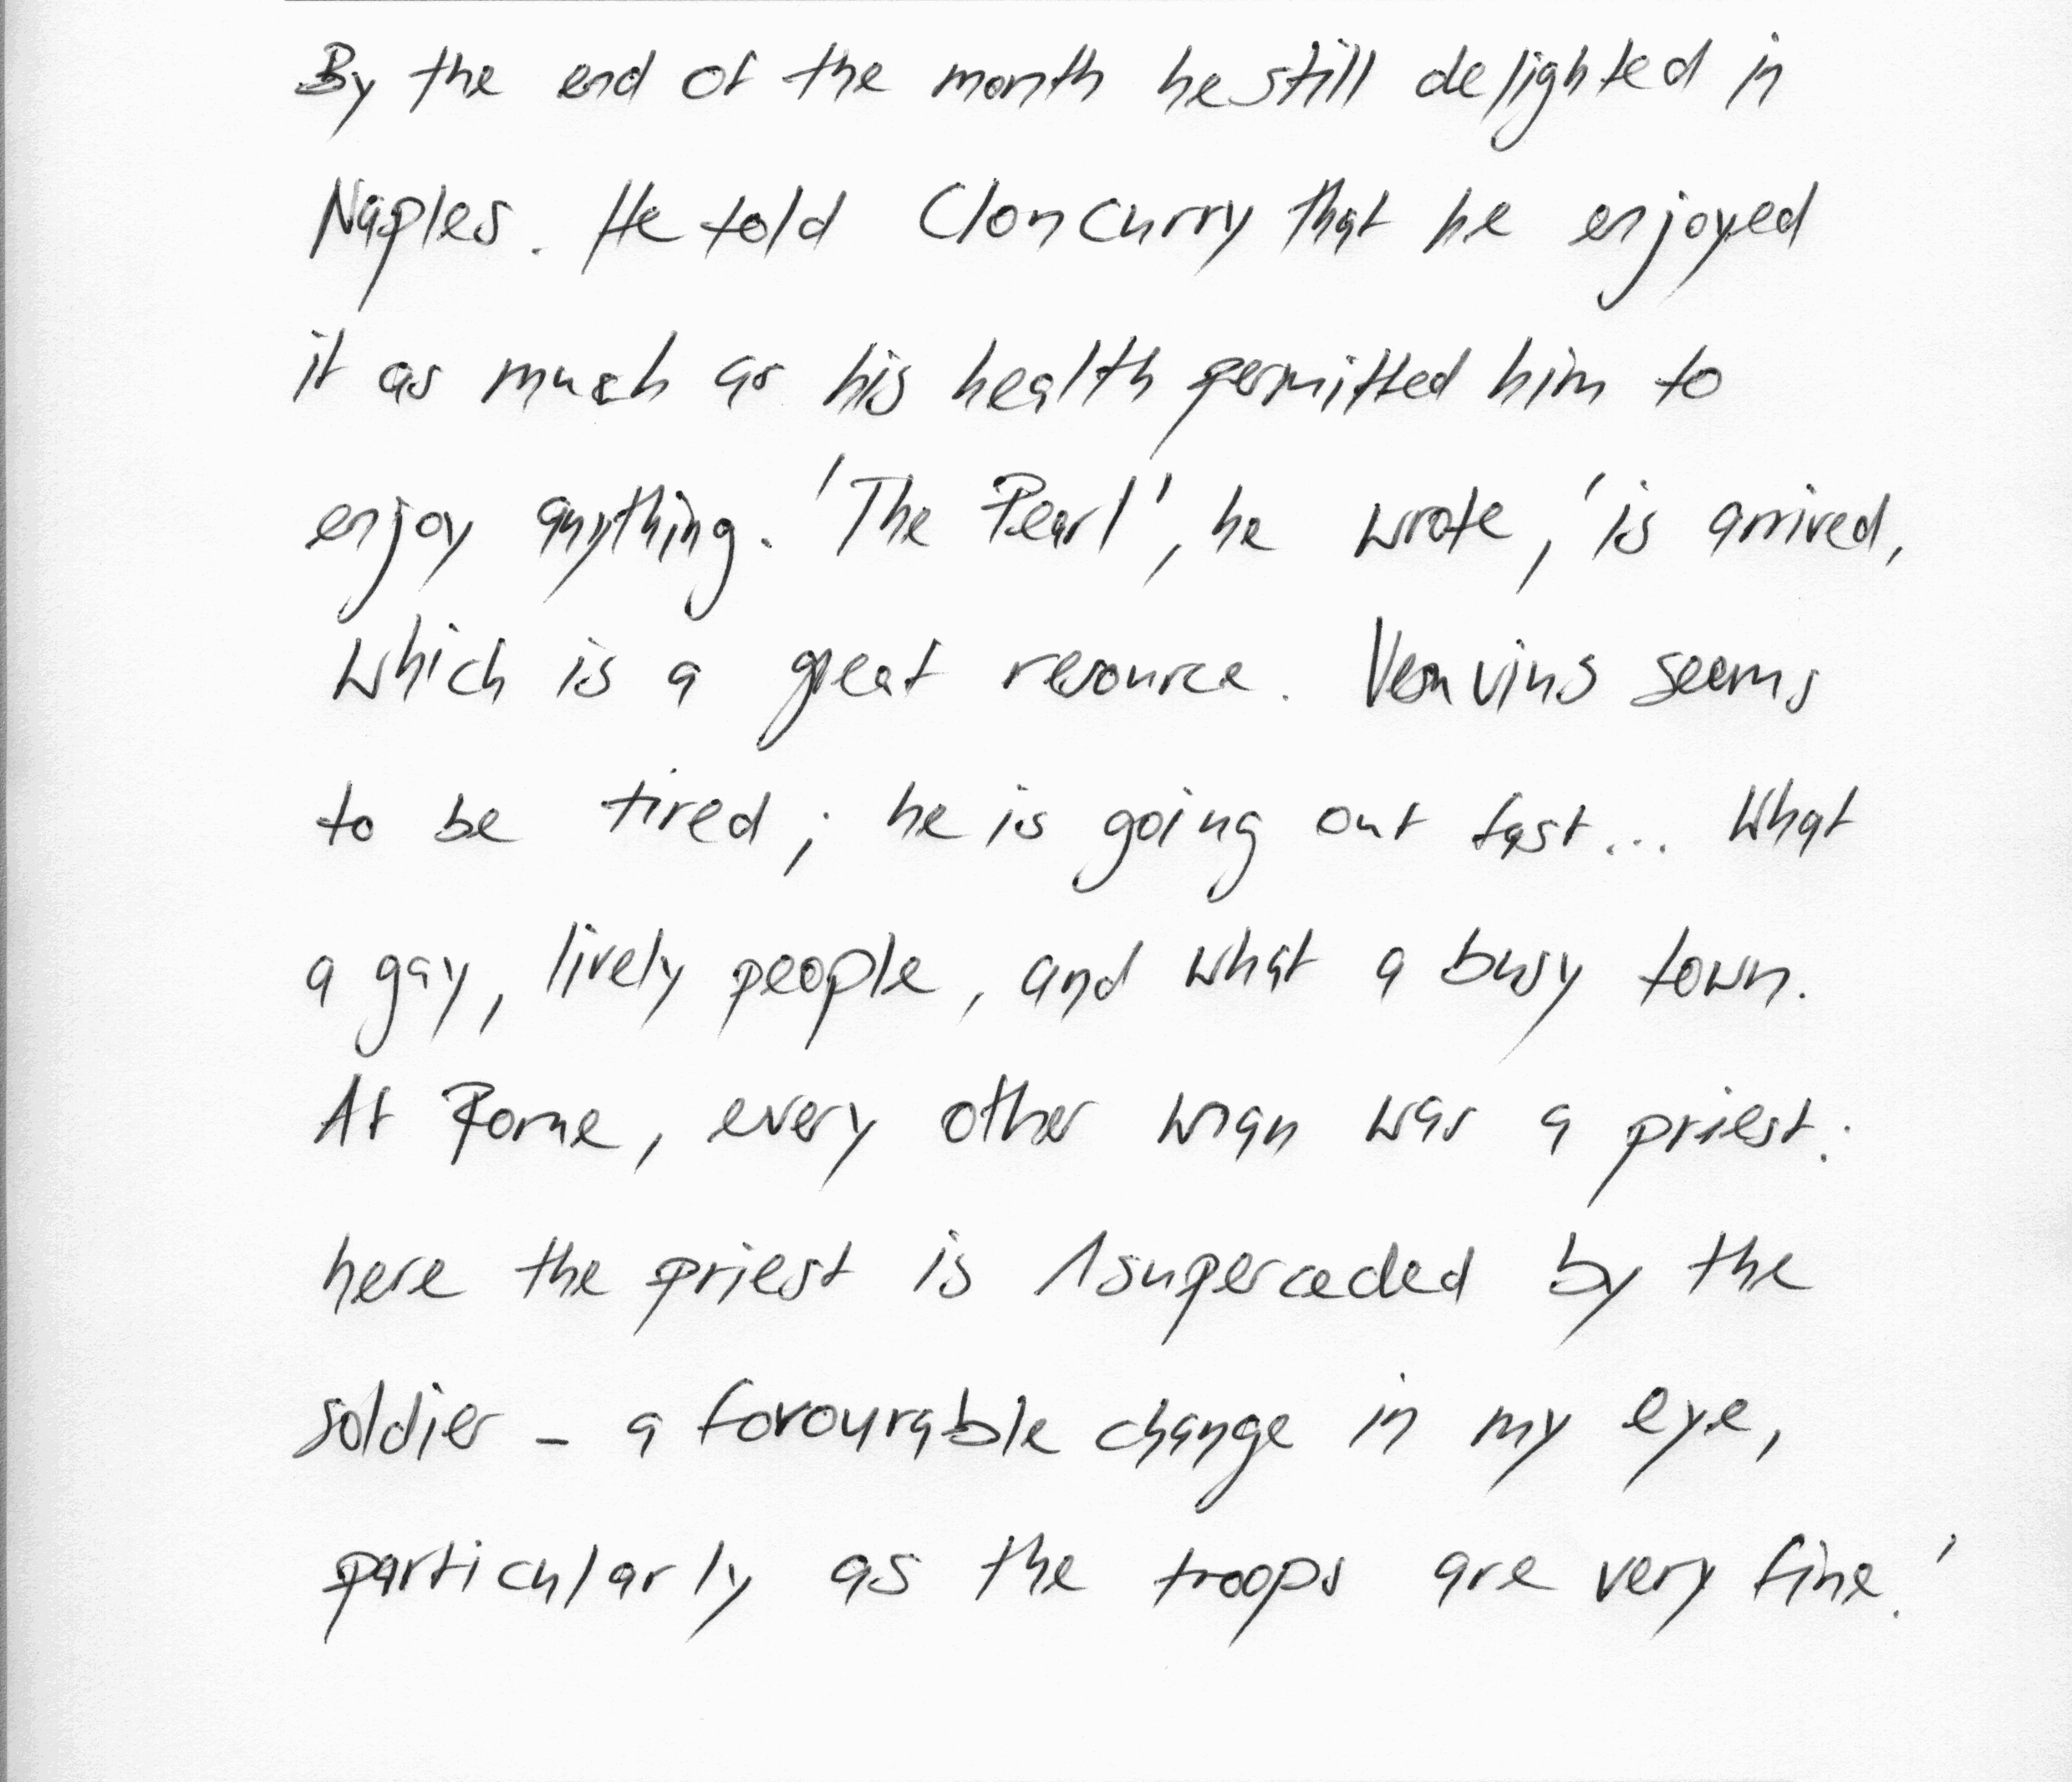 By the end of the month he still delighted in
Naples. He told Cloncurry that he enjoyed
it as much as his health permitted him to
enjoy anything. 'The Pearl', he wrote, 'is arrived,
which is a great resource. Vesuvius seems
to be tired; he is going out fast... What
a gay, lively people, and what a busy town.
At Rome, every other man was a priest:
here the priest is superceded by the
soldier - a favourable change in my eye,
particularly as the troops are very fine.'